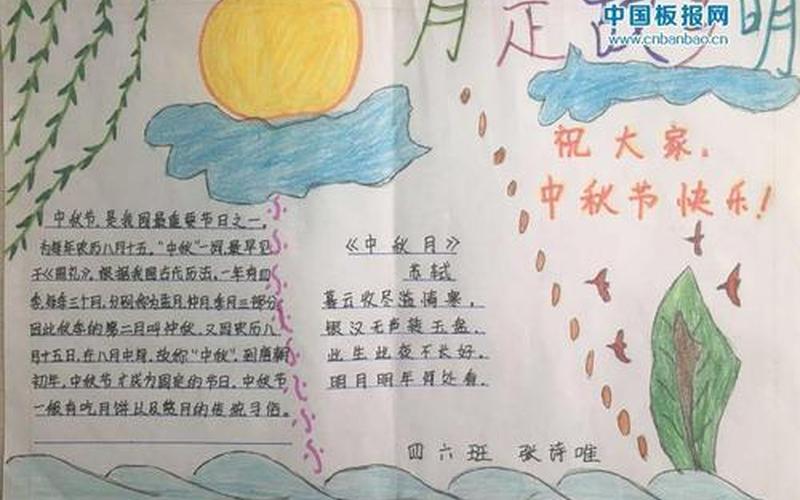 月是故乡明
中国板报网
www.cnbanbao.cn
祝大家。
中秋节快乐！
中秋节,是我国最重要节日之一,
为每年农历八月十五。“中秋”一词,最早见
于《周礼》。根据我国古代历法,一年有四
季每季三个月,分别称为孟月仲月季月三部分
因此秋季的第二月叫仲秋,又因农历八
月十五日,在八月中旬,故称“中秋”。到唐朝
初年,中秋节才成为固定的节日。中秋节
一般有吃月饼以及赏月的传统习俗。
《中秋月》
苏轼
暮云收尽溢清寒,
银汉无声转玉盘。
此生此夜不长好,
明月明年何处看。
四六班 张诗唯